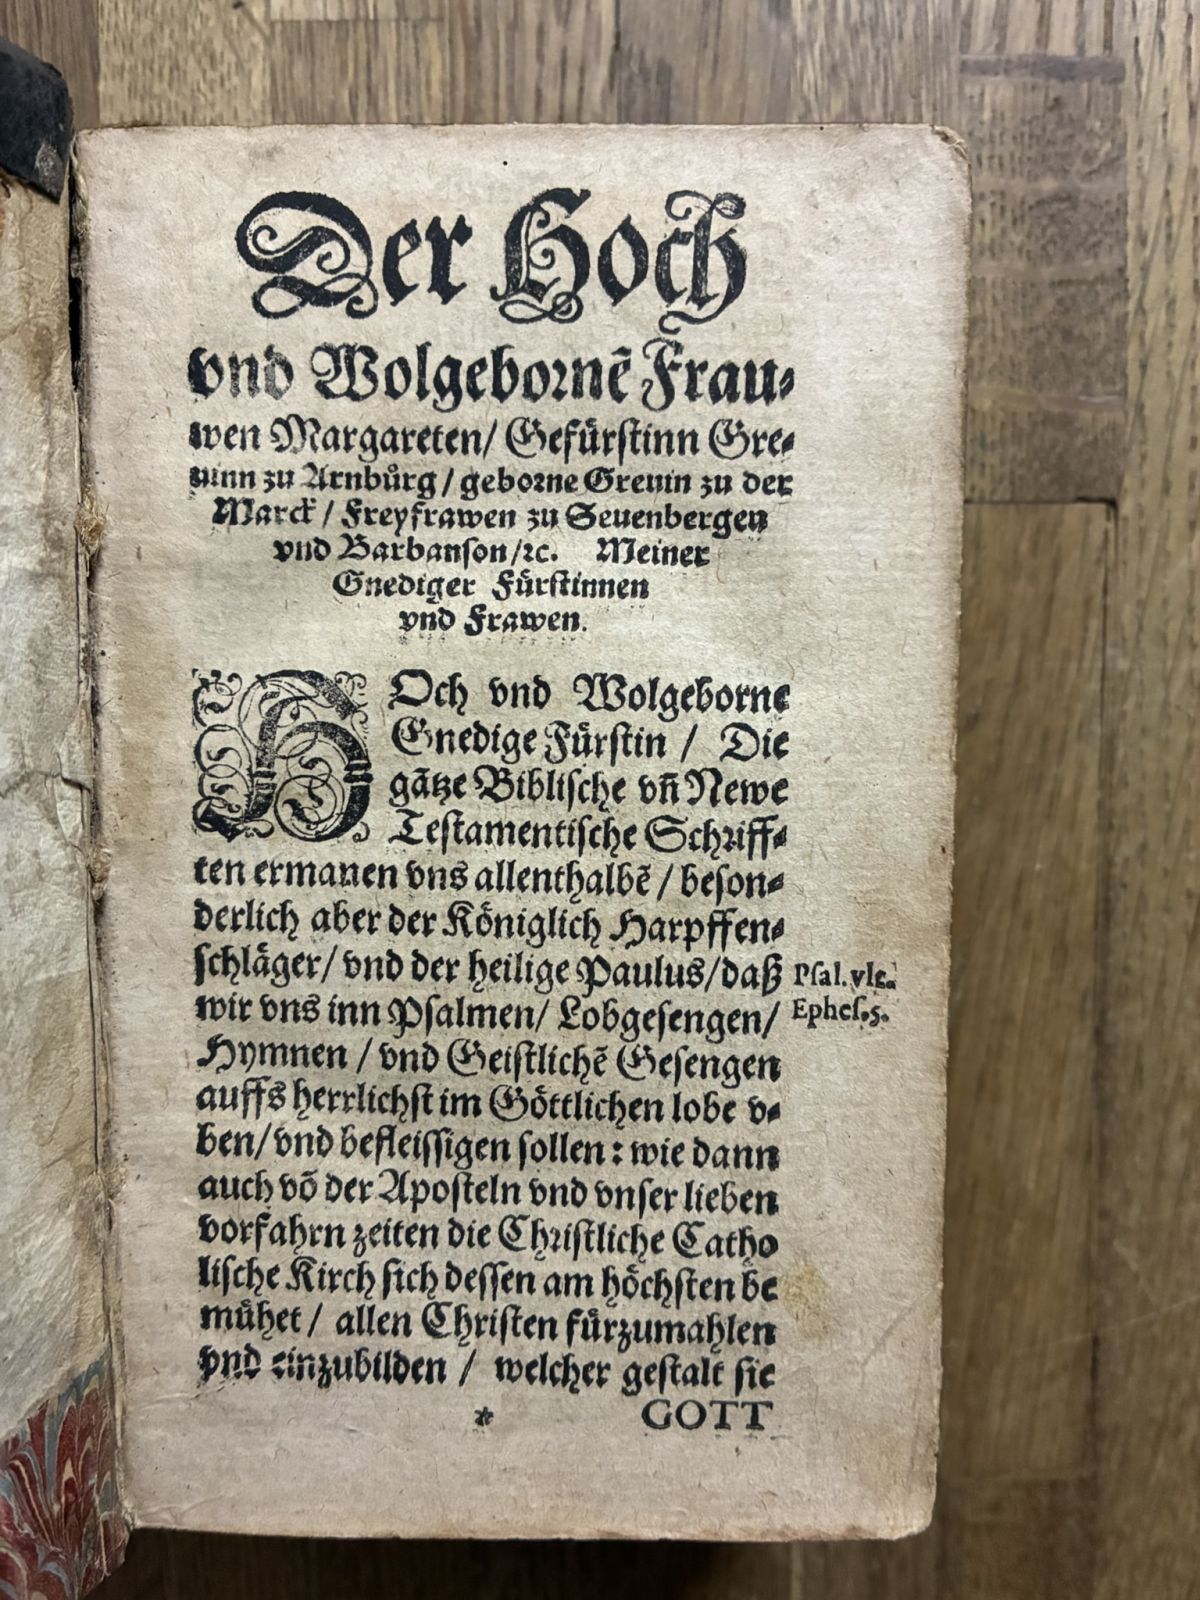 Der Hoch
vnd Wolgebornẽ Frau⸗
wen Margareten/ Gefürstinn Gre⸗
uinn zu Arnbůrg / geborne Greuin zu der
Marck / Freyfrawen zu Seuenbergen
vnd Barbanson/ꝛc. Meiner
Gnediger Fürstinnen
vnd Frawen.
HOch vnd Wolgeborne
Gnedige Fürstin / Die
gãtze Biblische vñ Newe
Testamentische Schriff⸗
ten ermanen vns allenthalbẽ / beson⸗
derlich aber der Königlich Harpffen⸗
schläger/ vnd der heilige Paulus/ daß
Psal. vlt.
wir vns inn Psalmen/ Lobgesengen/
Ephes.5.
Hymnen / vnd Geistlichẽ Gesengen
auffs herrlichst im Göttlichen lobe v⸗
ben/ vnd befleissigen sollen: wie dann
auch võ der Aposteln vnd vnser lieben
vorfahrn zeiten die Christliche Catho
lische Kirch sich dessen am höchsten be
mühet / allen Christen fürzumahlen
vnd einzubilden / welcher gestalt sie
* GOTT